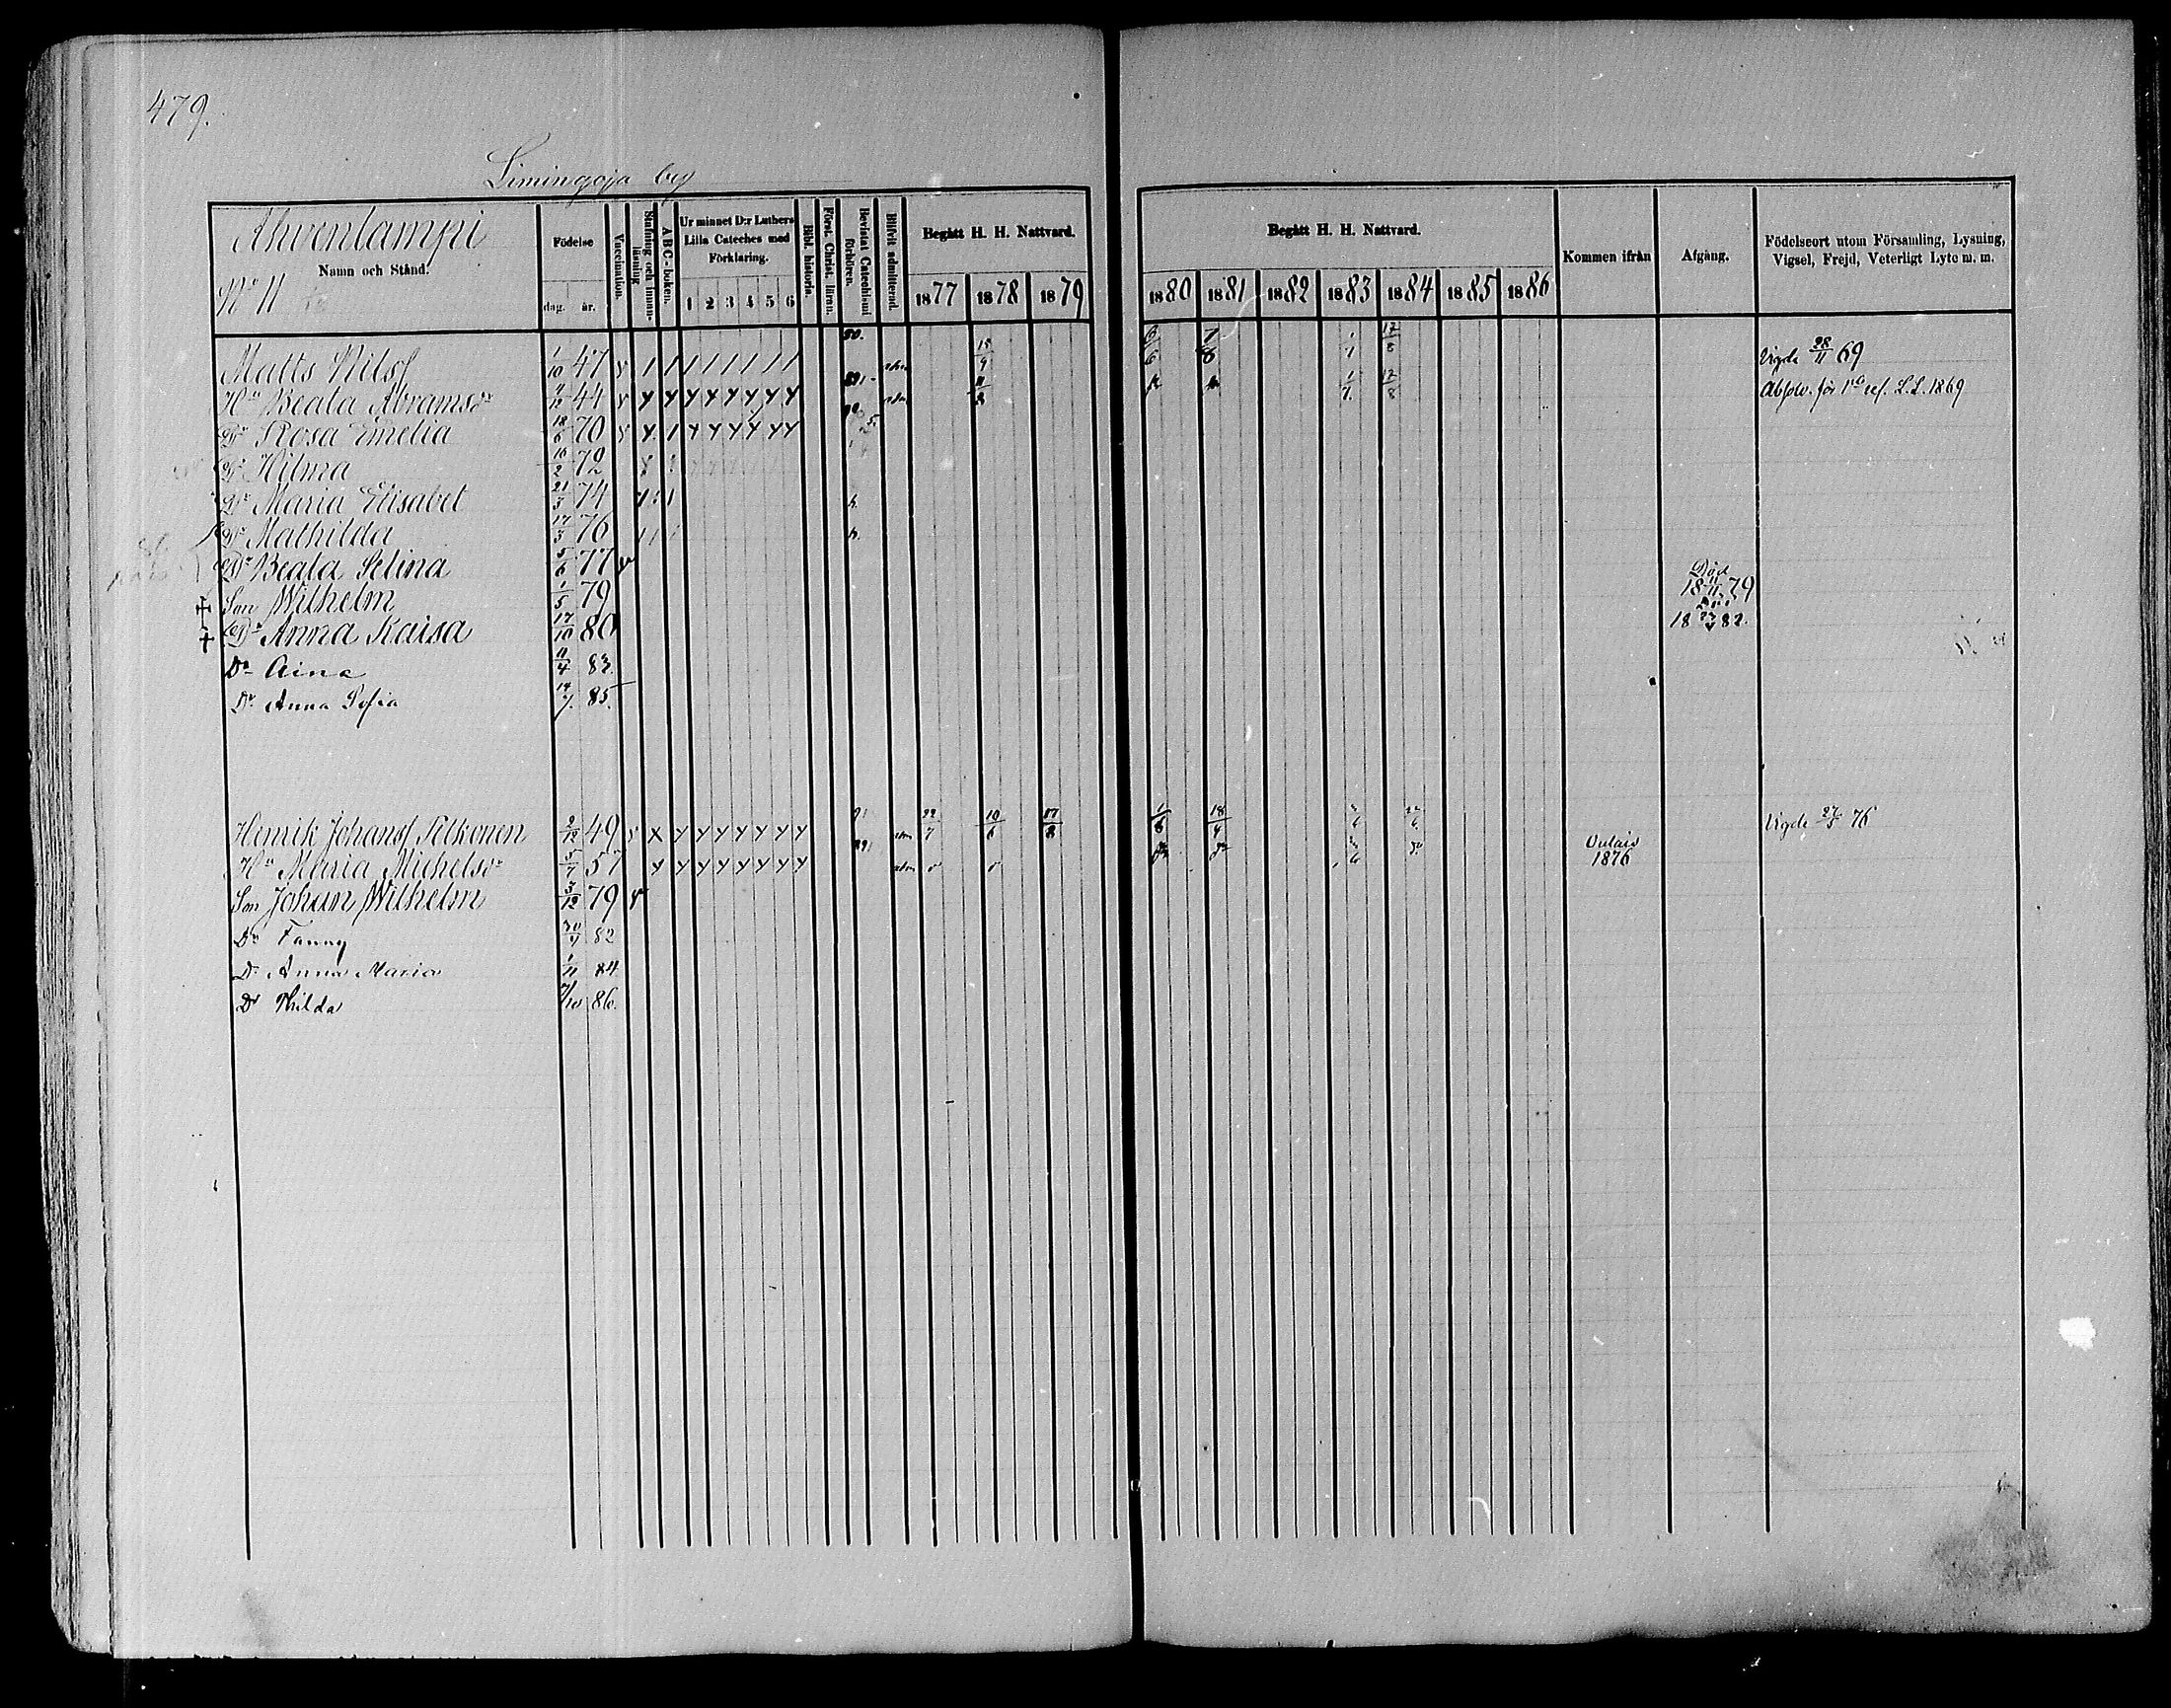 479.
Limingoja by
Ahvenlampi
No 11
Namn och Stånd.
Födelse
dag. år.
Vaccination.
Stafning och innan-läsning
A B C-boken.
Ur minnet D:r Luthers Lilla Cateches med Förklaring.
1 2 3 4 5 6
Bibl. historia.
Först. Christ. läran.
Bevistat Catechismi förhören.
Blifvit admitterad.
Begått H. H. Nattvard.
1877 1878 1879
Begått H. H. Nattvard.
1880 1881 1882 1883 1884 1885 1886
Kommen ifrån
Afgång.
Födelseort utom Församling, Lysning, Vigsel, Frejd, Veterligt Lyte m. m.
Matts Nilsf 1/10 47 Vigde 28/11 69
Hu Beata Abramsdr 11/12 44 1869
Dr Rosa Emelia 18/6 70
Dr Hilma 16/2 72
Dr Maria Elisabet 21/3 74
Dr Mathilda 17/3 76
Dr Beata Selina 5/6 77
Son Wilhelm 1/5 79 Död 18 11/11 79
Dr Anna Kaisa 17/10 80 Död 18 82.
Dr Aina 11/4 83.
Dr Anna Sofia 14/7 85.
Henrik Johansf Pelkonen 2/12 49 22/7 10/6 1/6 18/4 Vigde 27/5 76
Hu Maria Michelsdr 5/7 57 Oulais 1876
Son Johan Wilhelm 3/12 79
Dr Fanny 82
Dr Anna Maria 1/11 84
Dr Hilda 7/10 86.